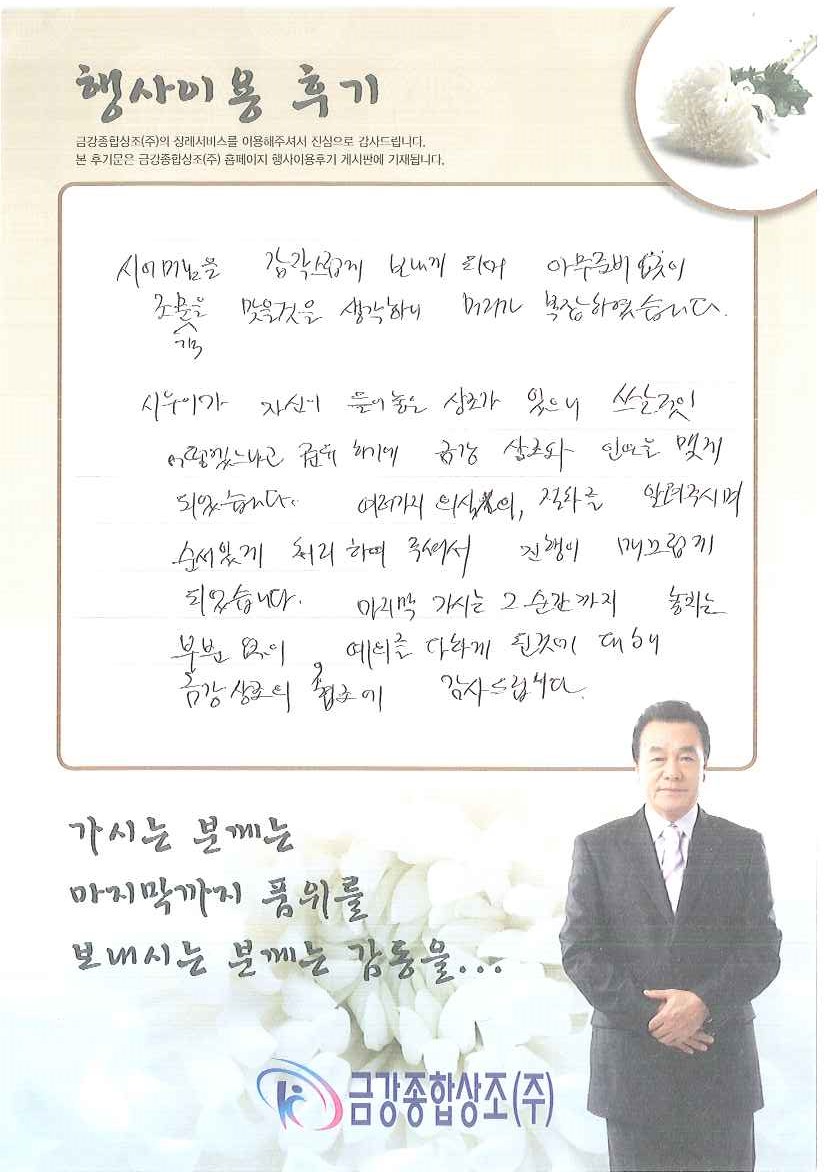 행사이용 후기
금강종합상조(주)의 장례서비스를 이용해주셔서 진심으로 감사드립니다.
본 후기문은 금강종합상조(주) 홈페이지 행사이용후기 게시판에 기재됩니다.
시어머님을 갑작스럽게 보내게 되어 아무준비 없이
조문객을 맞을것을 생각하니 머리가 복잡하였습니다.
시누이가 자신이 들어놓은 상조가 있으니 쓰실것이
어떻겠느냐고 하기에 금강 상조와 인연을 맺게
되었습니다. 여러가지 의식의, 절차를 알려주시며
순서있게 처리하여 주셔서 진행이 매끄럽게
되었습니다. 마지막 가시는 그 순간까지 놓치는
부분 없이, 예의를 다하게 된것에 대해
금강상조의 협조에 감사드립니다.
가시는 분께는
마지막까지 품위를
보내시는 분께는 감동을...
금강종합상조(주)